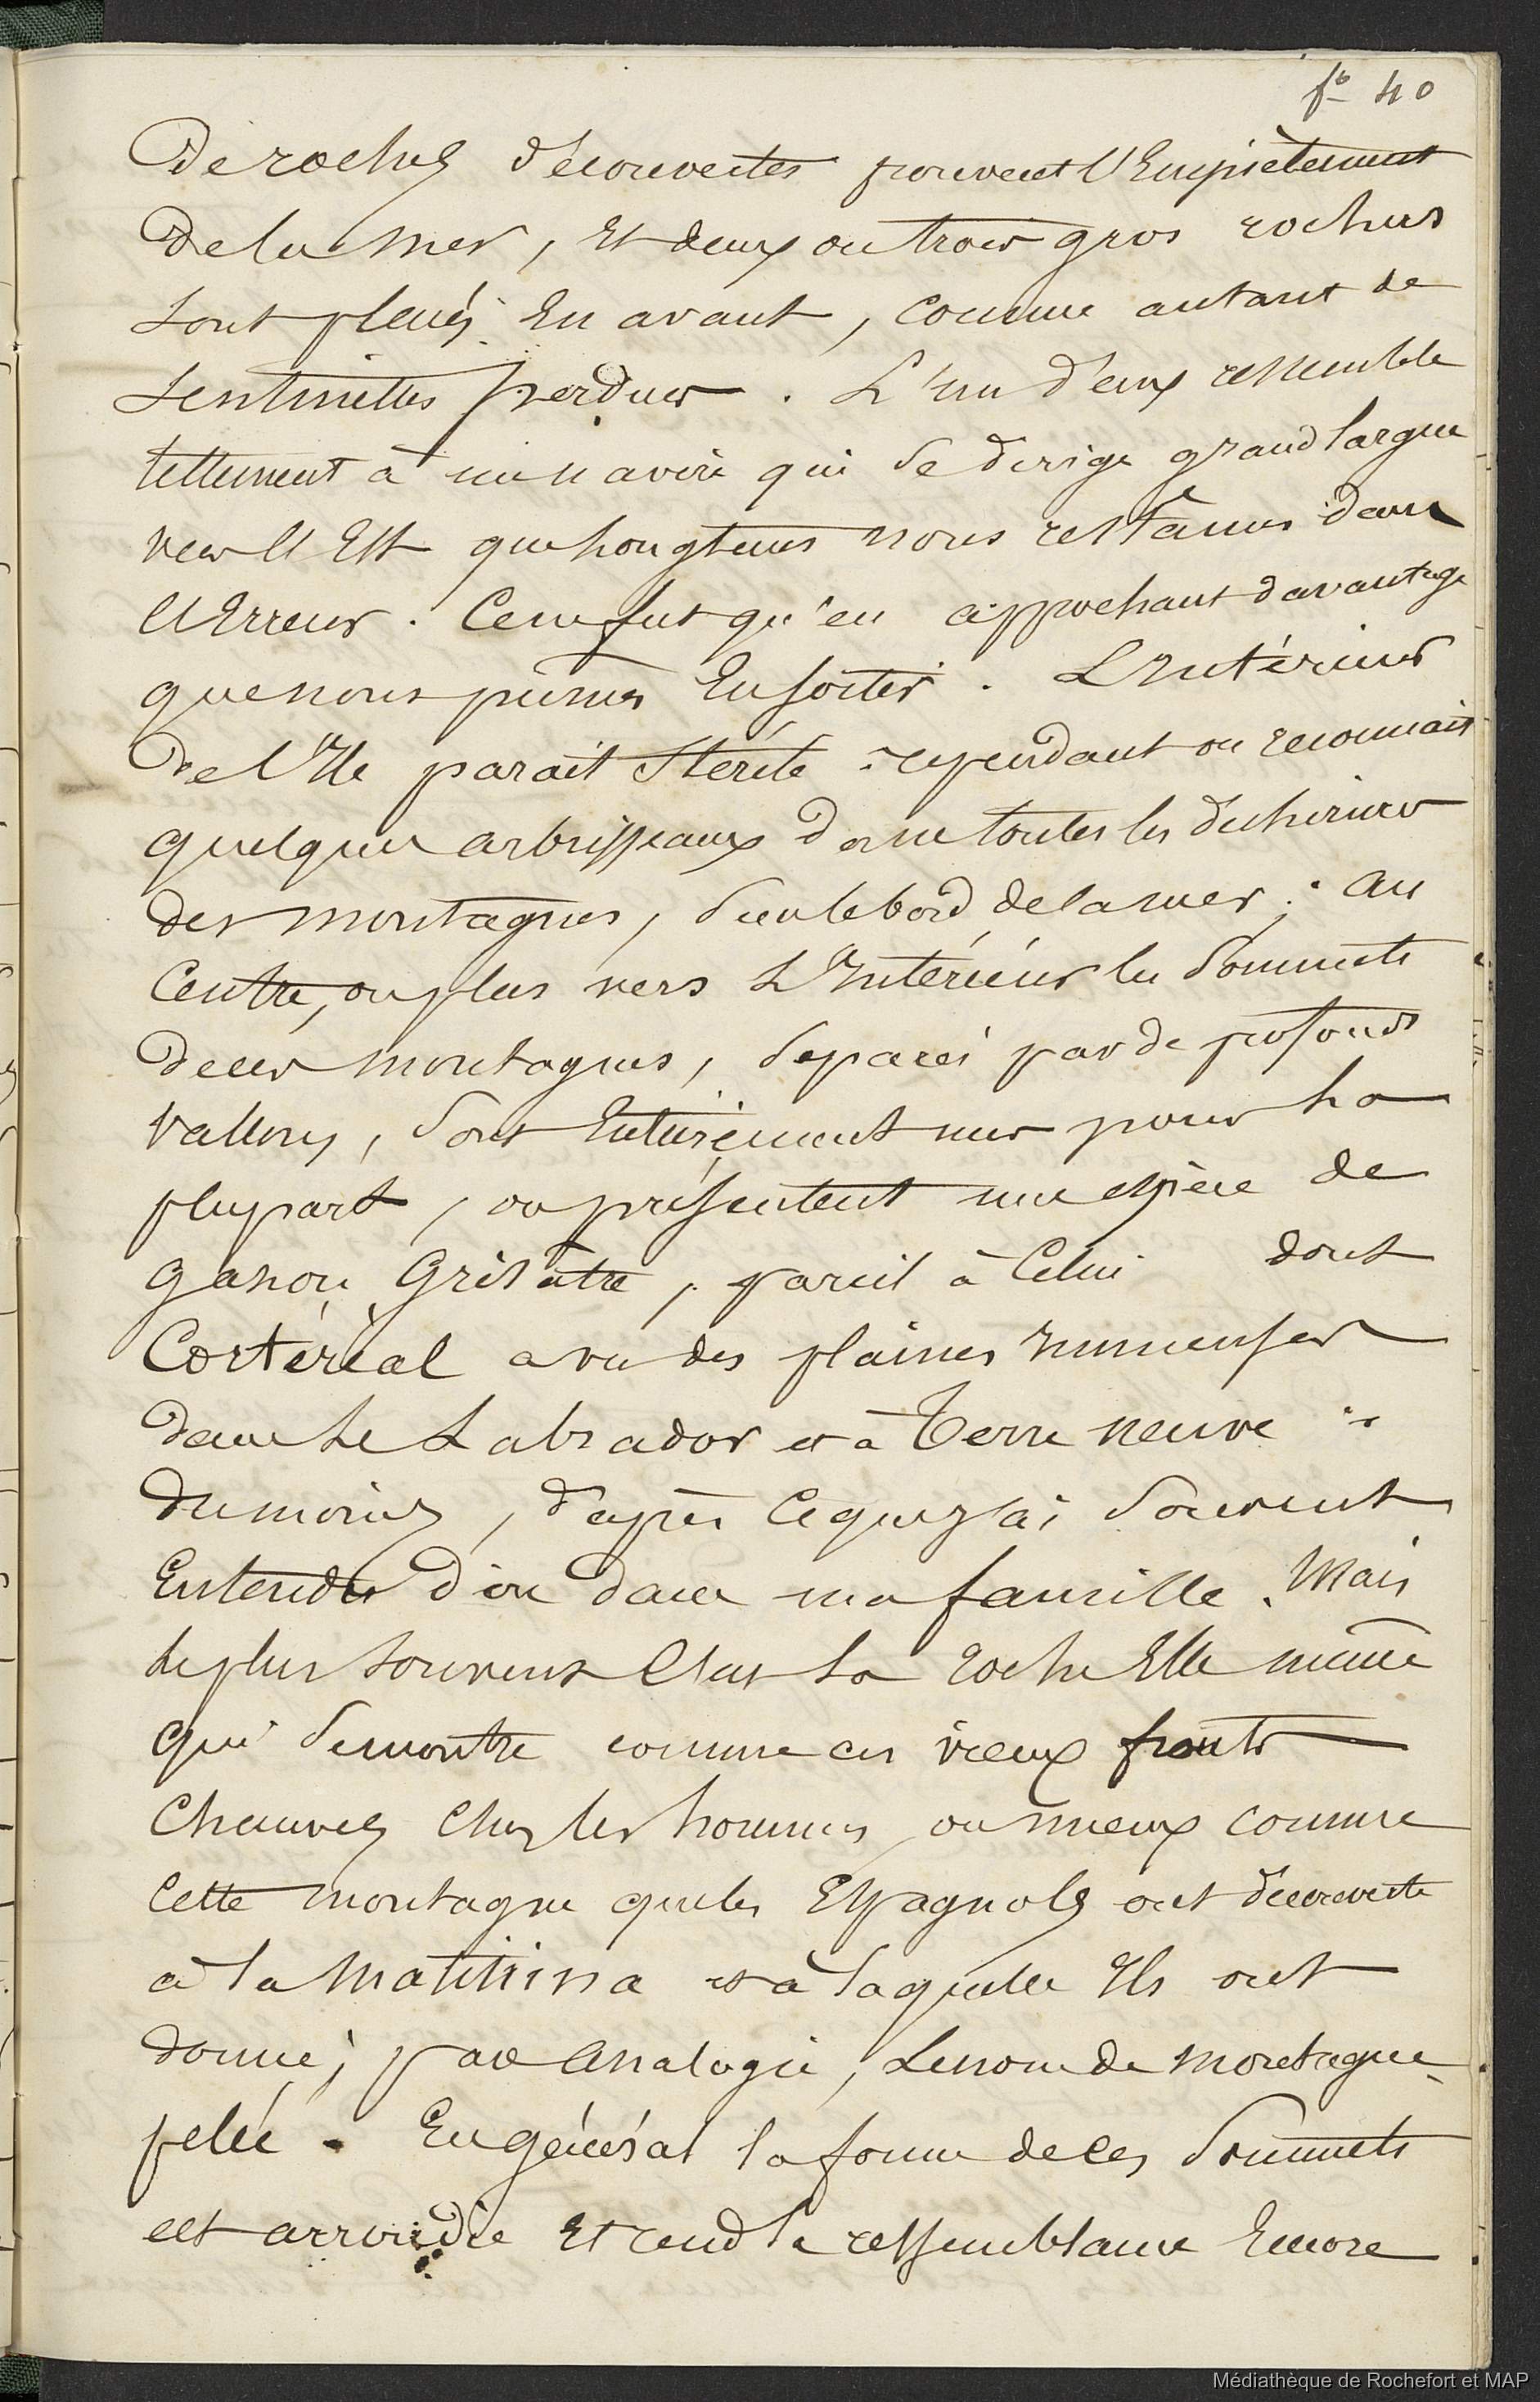 fo 40
De roches découvertes prouvent l'Empiètement
De la mer, Et deux ou trois gros rochers
Sont placés En avant, Comme autant de
Sentinelles perdues. L'un d'eux ressemble
tellement à un navire qui se dirige grand largue
vers l'Est que longtems nous restâmes dans
l'Erreur. Ce ne fut qu'en approchant davantage
que nous pûmes En sortir. L'Intérieur
De l'Ile parait Stérile : cependant on reconnait
quelques arbrisseaux dans toutes les déchirures
des montagnes, sur le bord de la mer ; au
Centre, ou plus vers L'Intérieur les Sommets
De ces montagnes, séparés par de profonds
Vallons, sont Entièrement nus pour la
plupart, ou présentent une espèce de
gason Grisâtre, pareil à Celui dont
Cortéréal a vu des plaines Immenses
dans le Labrador et à Terre neuve :
du moins, d'après Ce que j'ai souvent
Entendu dire dans ma famille. Mais
le plus souvent C'est la roche Elle même
qui se montre comme ces vieux fronts
Chauves Chez les hommes ou mieux comme
Cette montagne que les Espagnols ont découverte
à la Matinina et à laquelle Ils ont
donné, par Analogie, Le nom de montagne
pelée. En général la forme de ces Sommets
est arrondie Et rend la ressemblance Encore
Médiathèque de Rochefort et MAP